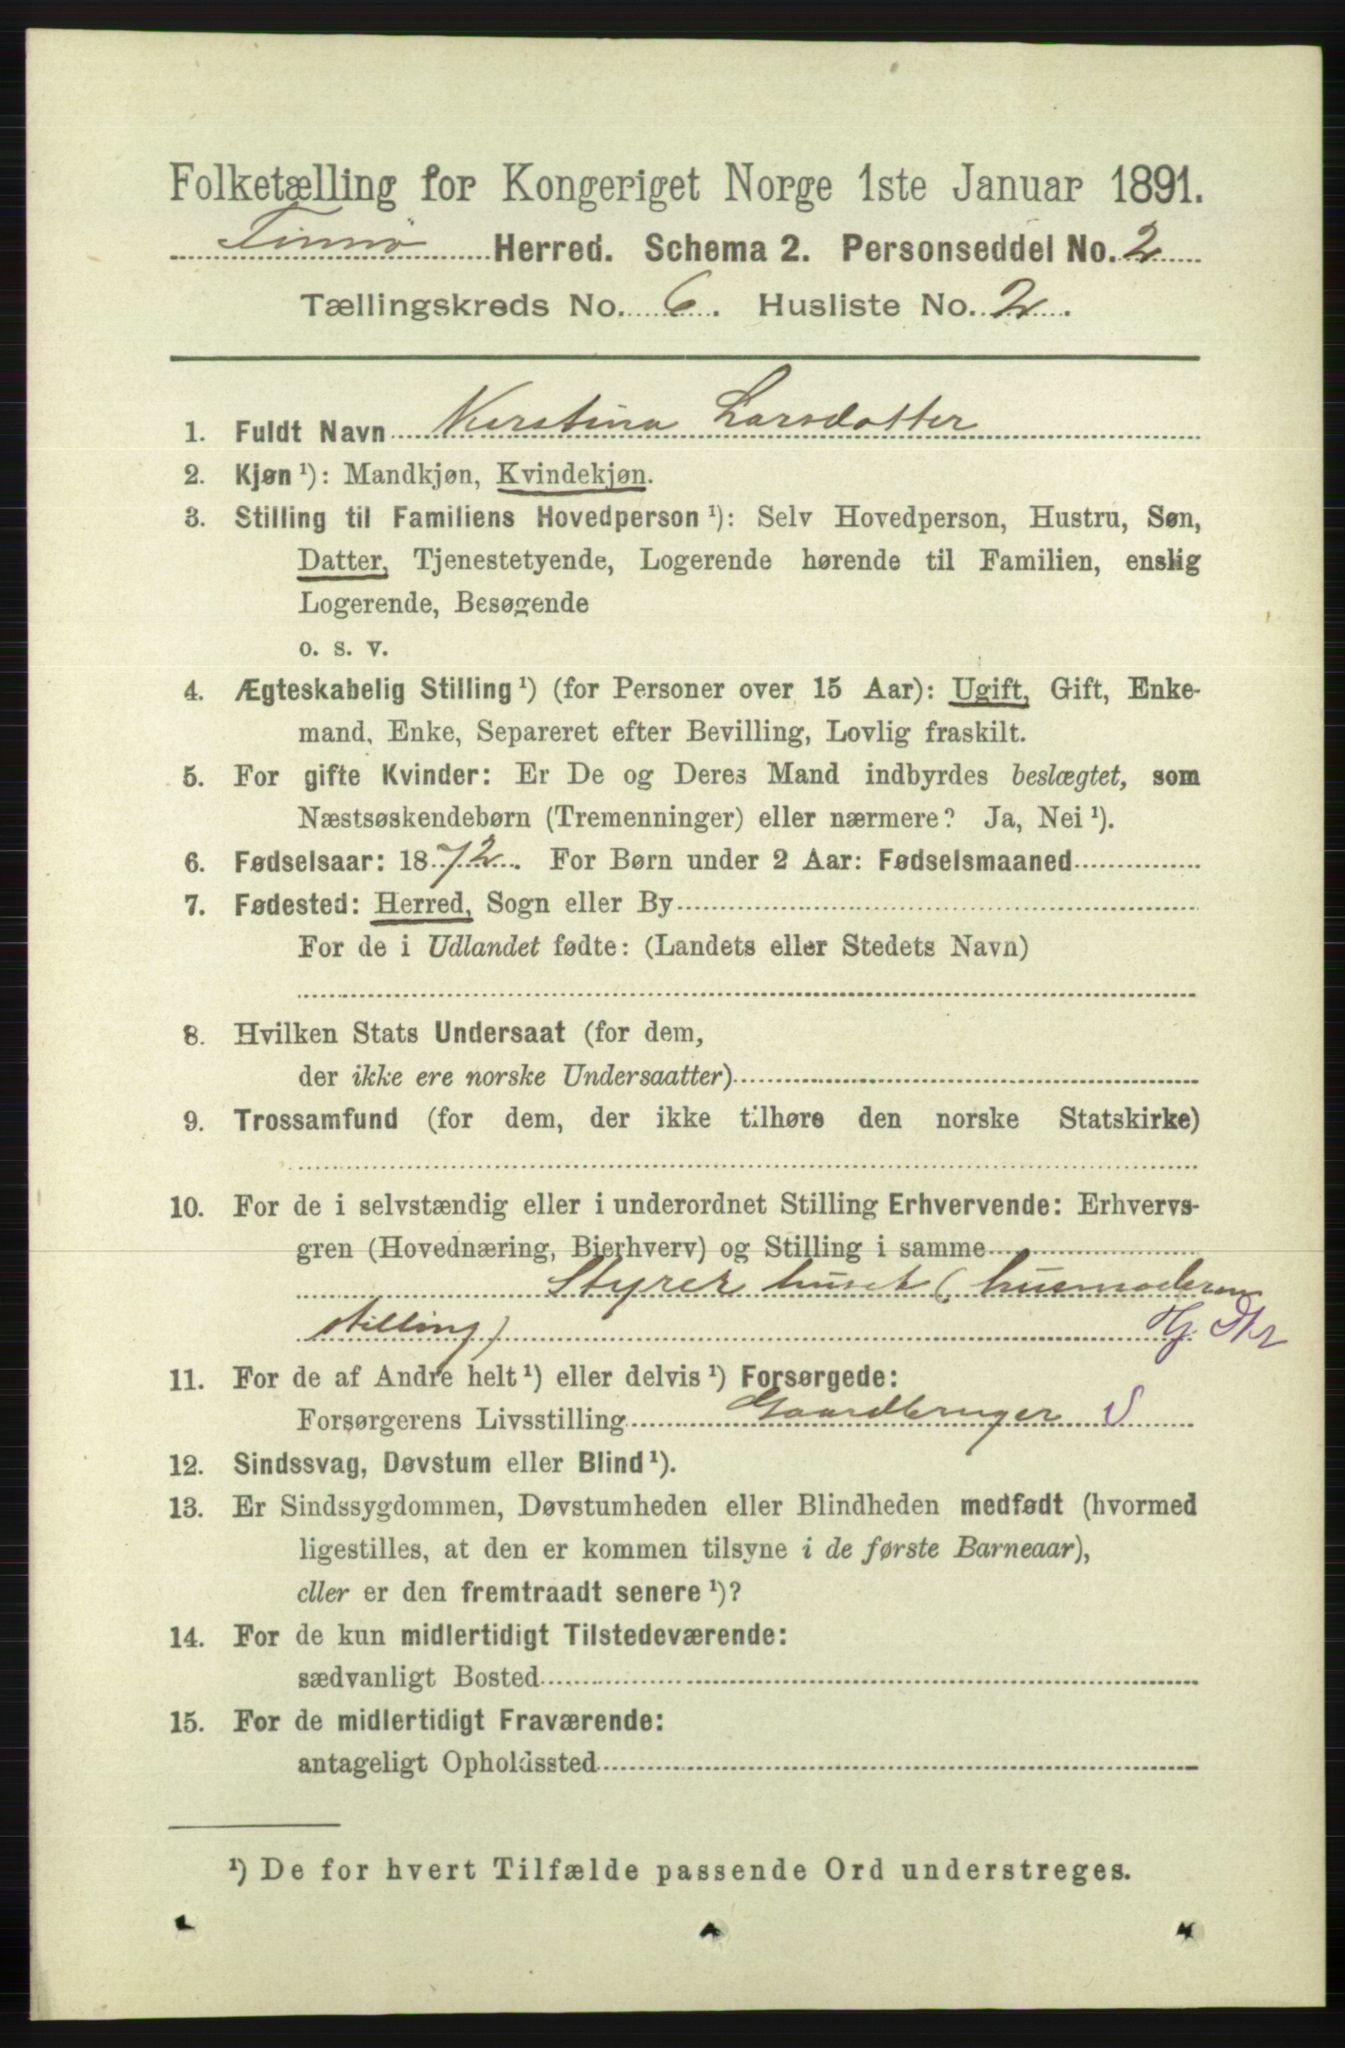 Folketælling for Kongeriget Norge 1ste Januar 1891.
Finnø Herred. Schema 2. Personseddel No. 2
Tællingskreds No. 6. Husliste No. 2.
1. Fuldt Navn Kerstina Larsdatter
2. Kjøn ¹): Mandkjøn, Kvindekjøn.
3. Stilling til Familiens Hovedperson ¹): Selv Hovedperson, Hustru, Søn,
Datter, Tjenestetyende, Logerende hørende til Familien, enslig
Logerende, Besøgende
o. s. v.
4. Ægteskabelig Stilling ¹) (for Personer over 15 Aar): Ugift, Gift, Enke-
mand, Enke, Separeret efter Bevilling, Lovlig fraskilt.
5. For gifte Kvinder: Er De og Deres Mand indbyrdes beslægtet, som
Næstsøskendebørn (Tremenninger) eller nærmere? Ja, Nei ¹).
6. Fødselsaar: 1872. For Børn under 2 Aar: Fødselsmaaned
7. Fødested: Herred, Sogn eller By
For de i Udlandet fødte: (Landets eller Stedets Navn)
8. Hvilken Stats Undersaat (for dem,
der ikke ere norske Undersaatter)
9. Trossamfund (for dem, der ikke tilhøre den norske Statskirke)
10. For de i selvstændig eller i underordnet Stilling Erhvervende: Erhvervs-
gren (Hovednæring, Bierhverv) og Stilling i samme
Styrer huset (husmoderen
stilling)
11. For de af Andre helt ¹) eller delvis ¹) Forsørgede:
Forsørgerens Livsstilling Gaardbruger S
12. Sindssvag, Døvstum eller Blind ¹).
13. Er Sindssygdommen, Døvstumheden eller Blindheden medfødt (hvormed
ligestilles, at den er kommen tilsyne i de første Barneaar),
eller er den fremtraadt senere ¹)?
14. For de kun midlertidigt Tilstedeværende:
sædvanligt Bosted
15. For de midlertidigt Fraværende:
antageligt Opholdssted
¹) De for hvert Tilfælde passende Ord understreges.